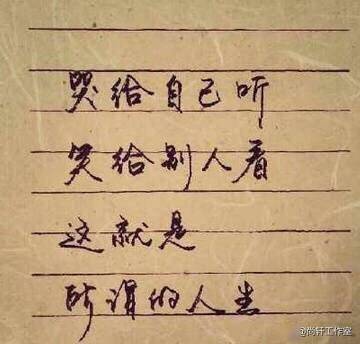 哭给自己听
笑给别人看
这就是
所谓的人生
@尚轩工作室